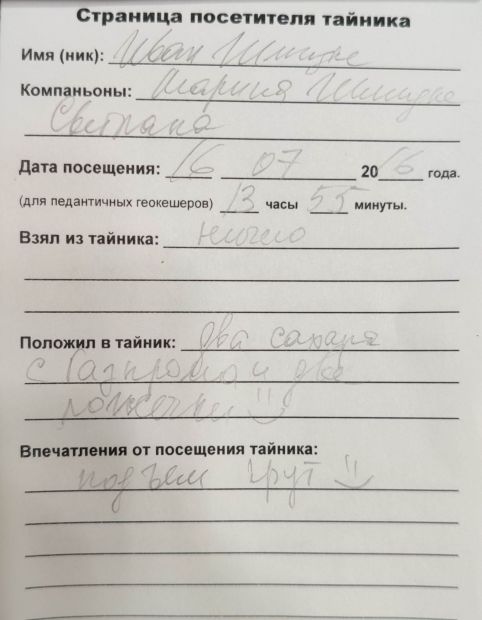 Страница посетителя тайника
Имя (ник): Иван Шмидт
Компаньоны: Марина Шмидт
Светлана
Дата посещения: 16 07 2016 года.
(для педантичных геокешеров) 13 часы 55 минуты.
Взял из тайника: ничего
Положил в тайник: два сахара
с Газпрома и две
ложечки :)
Впечатления от посещения тайника:
подъем крут :)